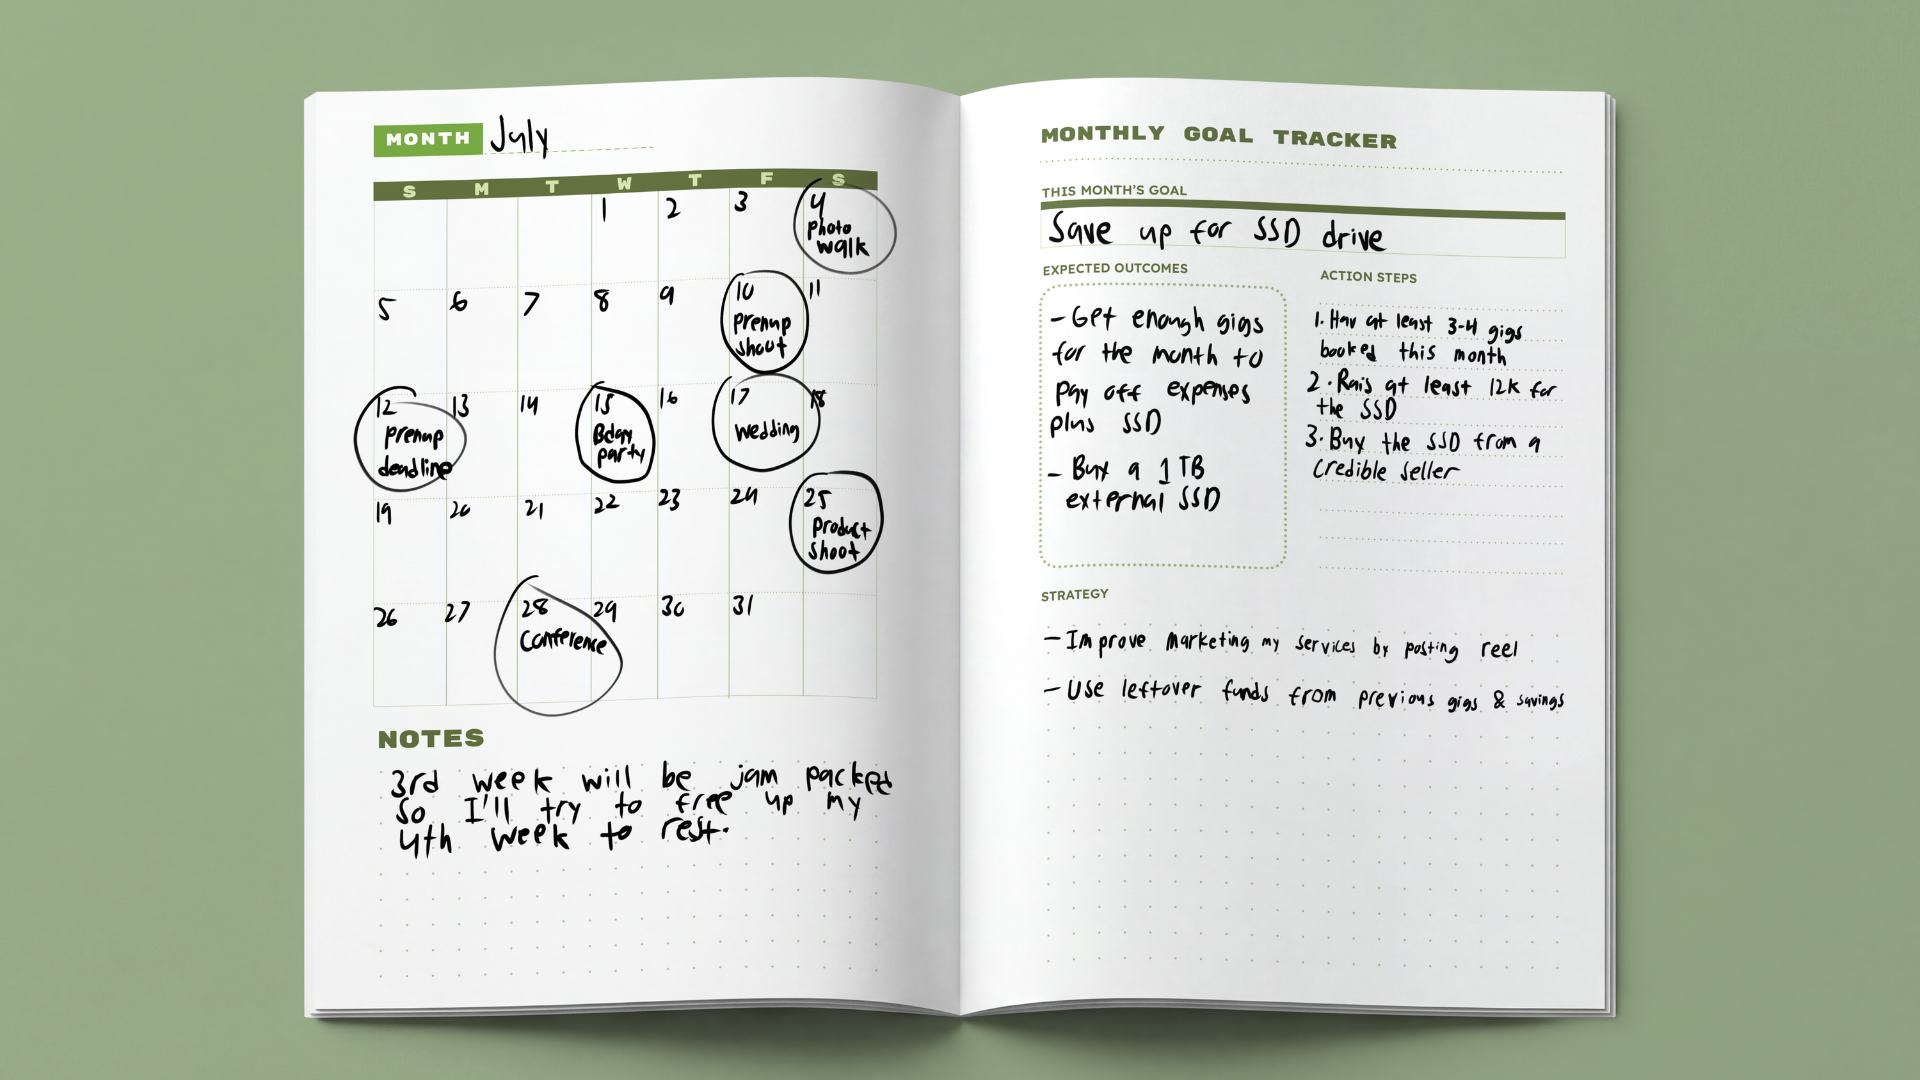 MONTH July
S M T W T F S
1 2 3 4
photo
walk
5 6 7 8 9 10 11
prenup
shoot
12 13 14 15 16 17 18
prenup
deadline
Bday
party
wedding
19 20 21 22 23 24 25
product
shoot
26 27 28 29 30 31
Conference
NOTES
3rd week will be jam packed
so I'll try to free up my
4th week to rest.
MONTHLY GOAL TRACKER
THIS MONTH'S GOAL
Save up for SSD drive
EXPECTED OUTCOMES
- Get enough gigs
for the month to
pay off expenses
plus SSD
- Buy a 1 TB
external SSD
ACTION STEPS
1. Hav at least 3-4 gigs
booked this month
2. Rais at least 12k for
the SSD
3. Buy the SSD from a
credible seller
STRATEGY
- Improve marketing my services by posting reel
- Use leftover funds from previous gigs & savings